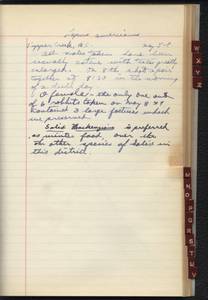 Lepus americanus
Topper Creek, B.C. May 5-8
All males taken have been
sexually active with testes greatly
enlarged. On 8th shot a pair
together at 8:30 in the morning
of a dull day.
O female - the only one out
of 6 rabbits taken on May 8 & 9
contained 3 large foetuses which
we preserved.
Salix Mackenziana is preferred
as winter food, over
the other species of Salix in
this district.
W
X
Y
Z
M
N
O
P
Q
R
S
T
U
V